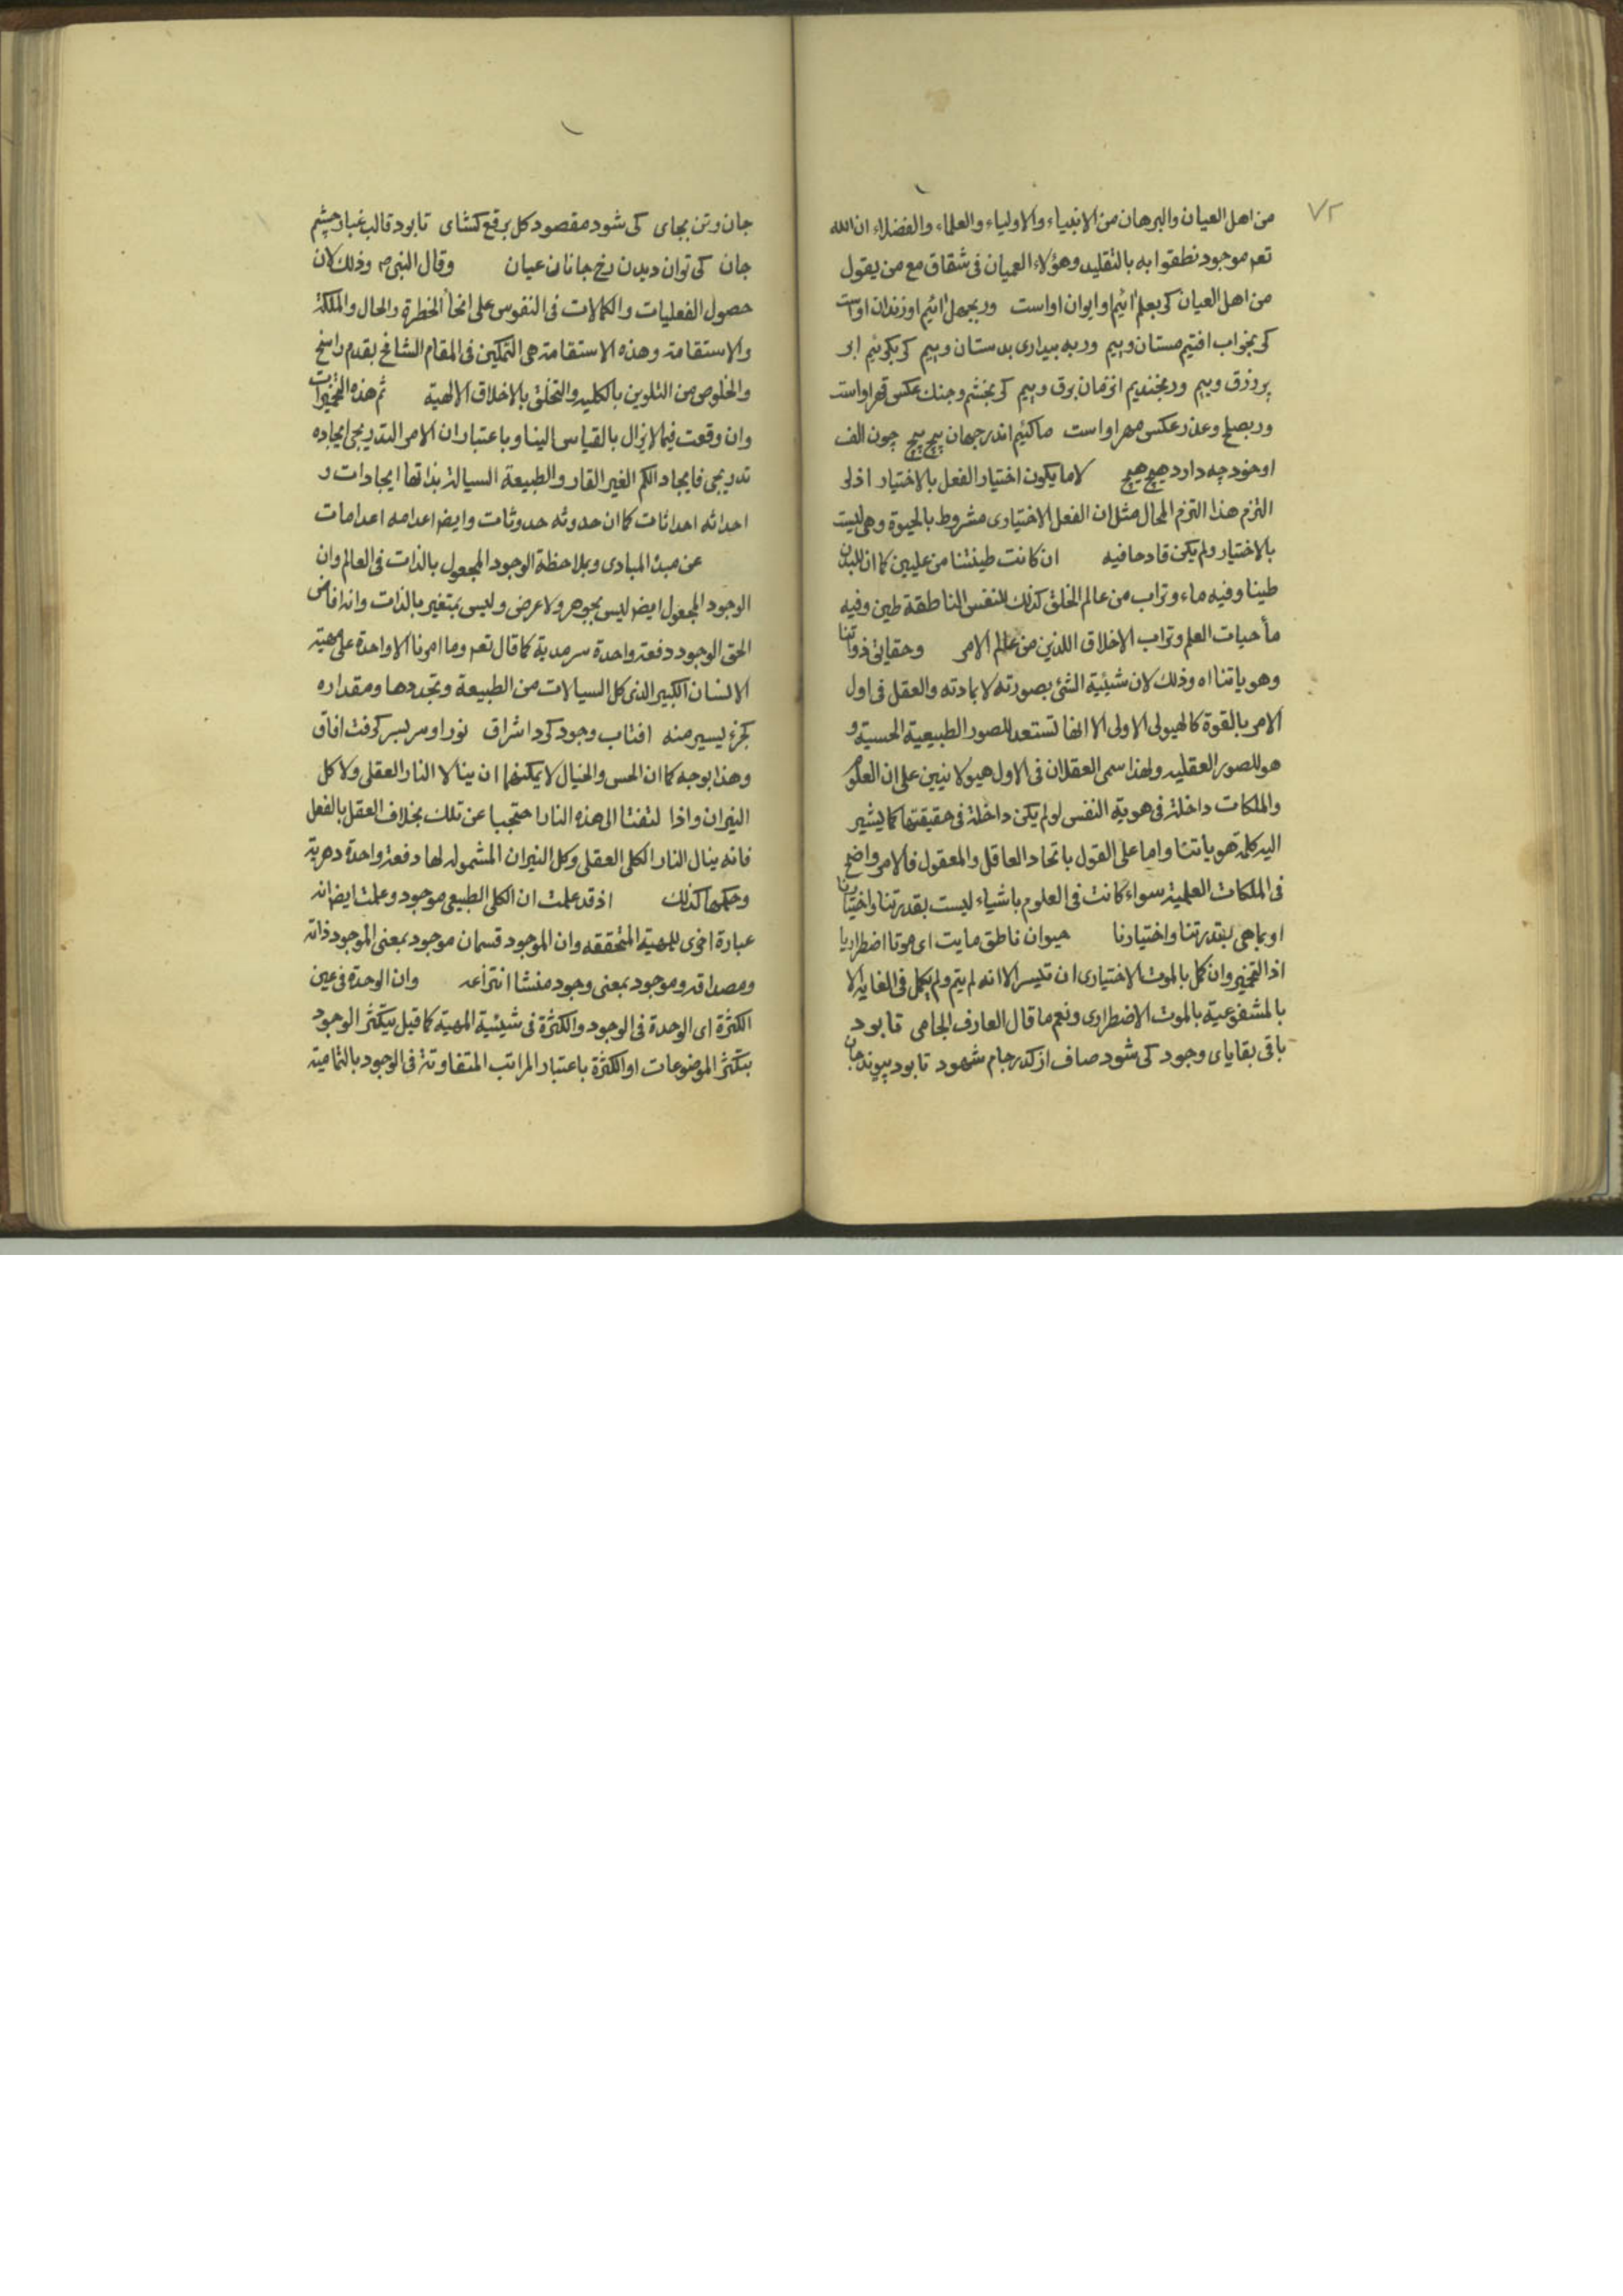 ٧٢
من اهل العيان والبرهان من الانبياء والاولياء والعلماء والفضلاء ان الله
تعم موجود نطقوا به بالتقليد وهؤلاء العميان فى شقاق مع من يقول
من اهل العيان كر بعلم ائيم او ايوان اواست ور بجهل ائيم او زندان اواست
كر بخواب افتيم مستان وييم ور به بيدارى بدستان وييم كر بكرئيم ابر
پر زرق وييم ور بخنديم انزمان برق وييم كر بخشم وجنك عكس قهر اواست
ور بصلح وعذر عكس مهر اواست ما كئيم اندر جهان پيچ پيچ چون الف
او خود چه دارد هيچ هيچ لاما يكون اختيار الفعل بالاختيار اذ لو
التزم هذا التزم المحال مثل ان الفعل الاختيارى مشروط بالحيوة وهى ليست
بالاختيار ولم يكن قادحا فيه ان كانت طينتنا من عليين كما ان للبدن
طينا وفيه ماء وتراب من عالم الخلق كذلك للنفس الناطقة طين وفيه
مأ حيات العلم وتراب الاخلاق اللذين من عالم الامر وحقايق ذواتنا
وهوياتنا اه وذلك لان شيئية الشئ بصورته لا بمادته والعقل فى اول
الامر بالقوة كالهيولى الاولى الا انها تستعد للصور الطبيعية الحسية و
هو للصور العقليه ولهذا سمى العقلان فى الاول هيولانيين على ان العلوم
والملكات داخلة فى هوية النفس لو لم يكن داخلة فى حقيقتها كما يشير
اليه كلمة هوياتنا واما على القول باتحاد العاقل والمعقول فالامر واضح
فى الملكات العلمية سواء كانت فى العلوم باشياء ليست بقدرتنا واختيارنا
او بما هى بقدرتنا واختيارنا حيوان ناطق مايت اى موتا اضطراريا
اذ التخمير وان كمل بالموت الاختيارى ان تيسر الا انه لم يتم ولم يكمل فى الغاية الا
بالمشفوعية بالموت الاضطرارى ونعم ما قال العارف الجامى تا بود
باقى بقاياى وجود كى شود صاف از كدر جام شهود تا بود پيوند جان
جان وتن بجاى كى شود مقصود كل برقع كشاى تا بود قالب غبار چشم
جان كى توان ديدن رخ جانان عيان وقال النبى ص وذلك لان
حصول الفعليات والكمالات فى النفوس على انحأ الخطرة والحال والملكة
والاستقامة وهذه الاستقامة هى التمكين فى المقام الشامخ بقدم راسخ
والخلوص من التلوين بالكلية والتخلق بالاخلاق الالهية ثم هذه التخميرات
وان وقعت فيما لا يزال بالقياس الينا وباعتبار ان الامر التدريجى ايجاده
تدريجى فايجاد الكم الغير القار والطبيعة السيالة بذاتها ايجادات و
احداثه احداثات كما ان حدوثه حدوثات وايض اعدامه اعدامات
عن مبدء المبادى وبملاحظة الوجود المجعول بالذات فى العالم وان
الوجود المجعول ايض ليس بجوهر ولا عرض وليس بمتغير بالذات وانه افاض
الحق الوجود دفعة واحدة سرمدية كما قال تعم وما امرنا الا واحدة على مهية
الانسان الكبير الذى كل السيالات من الطبيعة وتجددها ومقداره
كجزء يسير منه افتاب وجود كرد اشراق نور او سر بسر كرفت افاق
وهذا بوجه كما ان الحس والخيال لا يمكنهما ان ينالا النار العقلى ولا كل
النيران واذا لتفتا الى هذه النار احتجبا عن تلك بخلاف العقل بالفعل
فانه ينال النار الكلى العقلى وكل النيران المشموله لها دفعة واحدة دهرية
وحكمها كذلك اذ قد علمت ان الكلى الطبيعى موجود وعلمت ايض انه
عبارة اخرى للمهية المتحققه وان الموجود قسمان موجود بمعنى الموجود ذاته
ومصداقه وموجود بمعنى وجود منشا انتزاعه وان الوحدة فى عين
الكثرة اى الوحدة فى الوجود والكثرة فى شيئية المهية كما قيل بتكثر الوجود
بتكثر الموضوعات او الكثرة باعتبار المراتب المتفاوتة فى الوجود بالتمامية